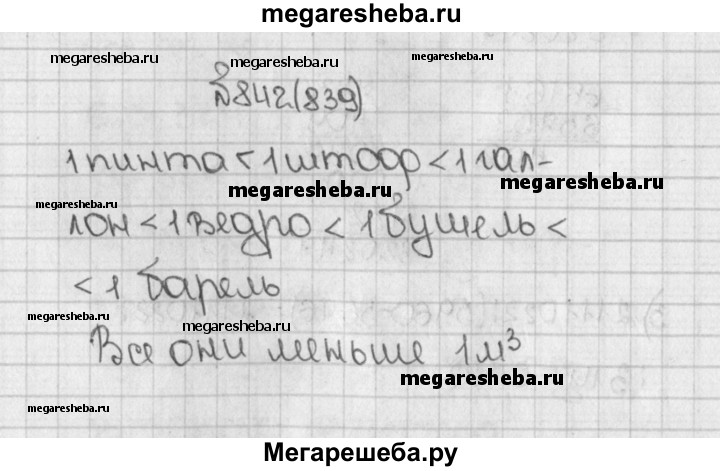 megaresheba.ru
megaresheba.ru megaresheba.ru megaresheba.ru
№842(839)
1 пинта < 1 штоор < 1 гал-
megaresheba.ru megaresheba.ru
megaresheba.ru
лон < 1 ведро < 1 бушель <
< 1 барель
megaresheba.ru megaresheba.ru
Все они меньше 1м³
megaresheba.ru
megaresheba.ru megaresheba.ru
Мегарешеба.ру